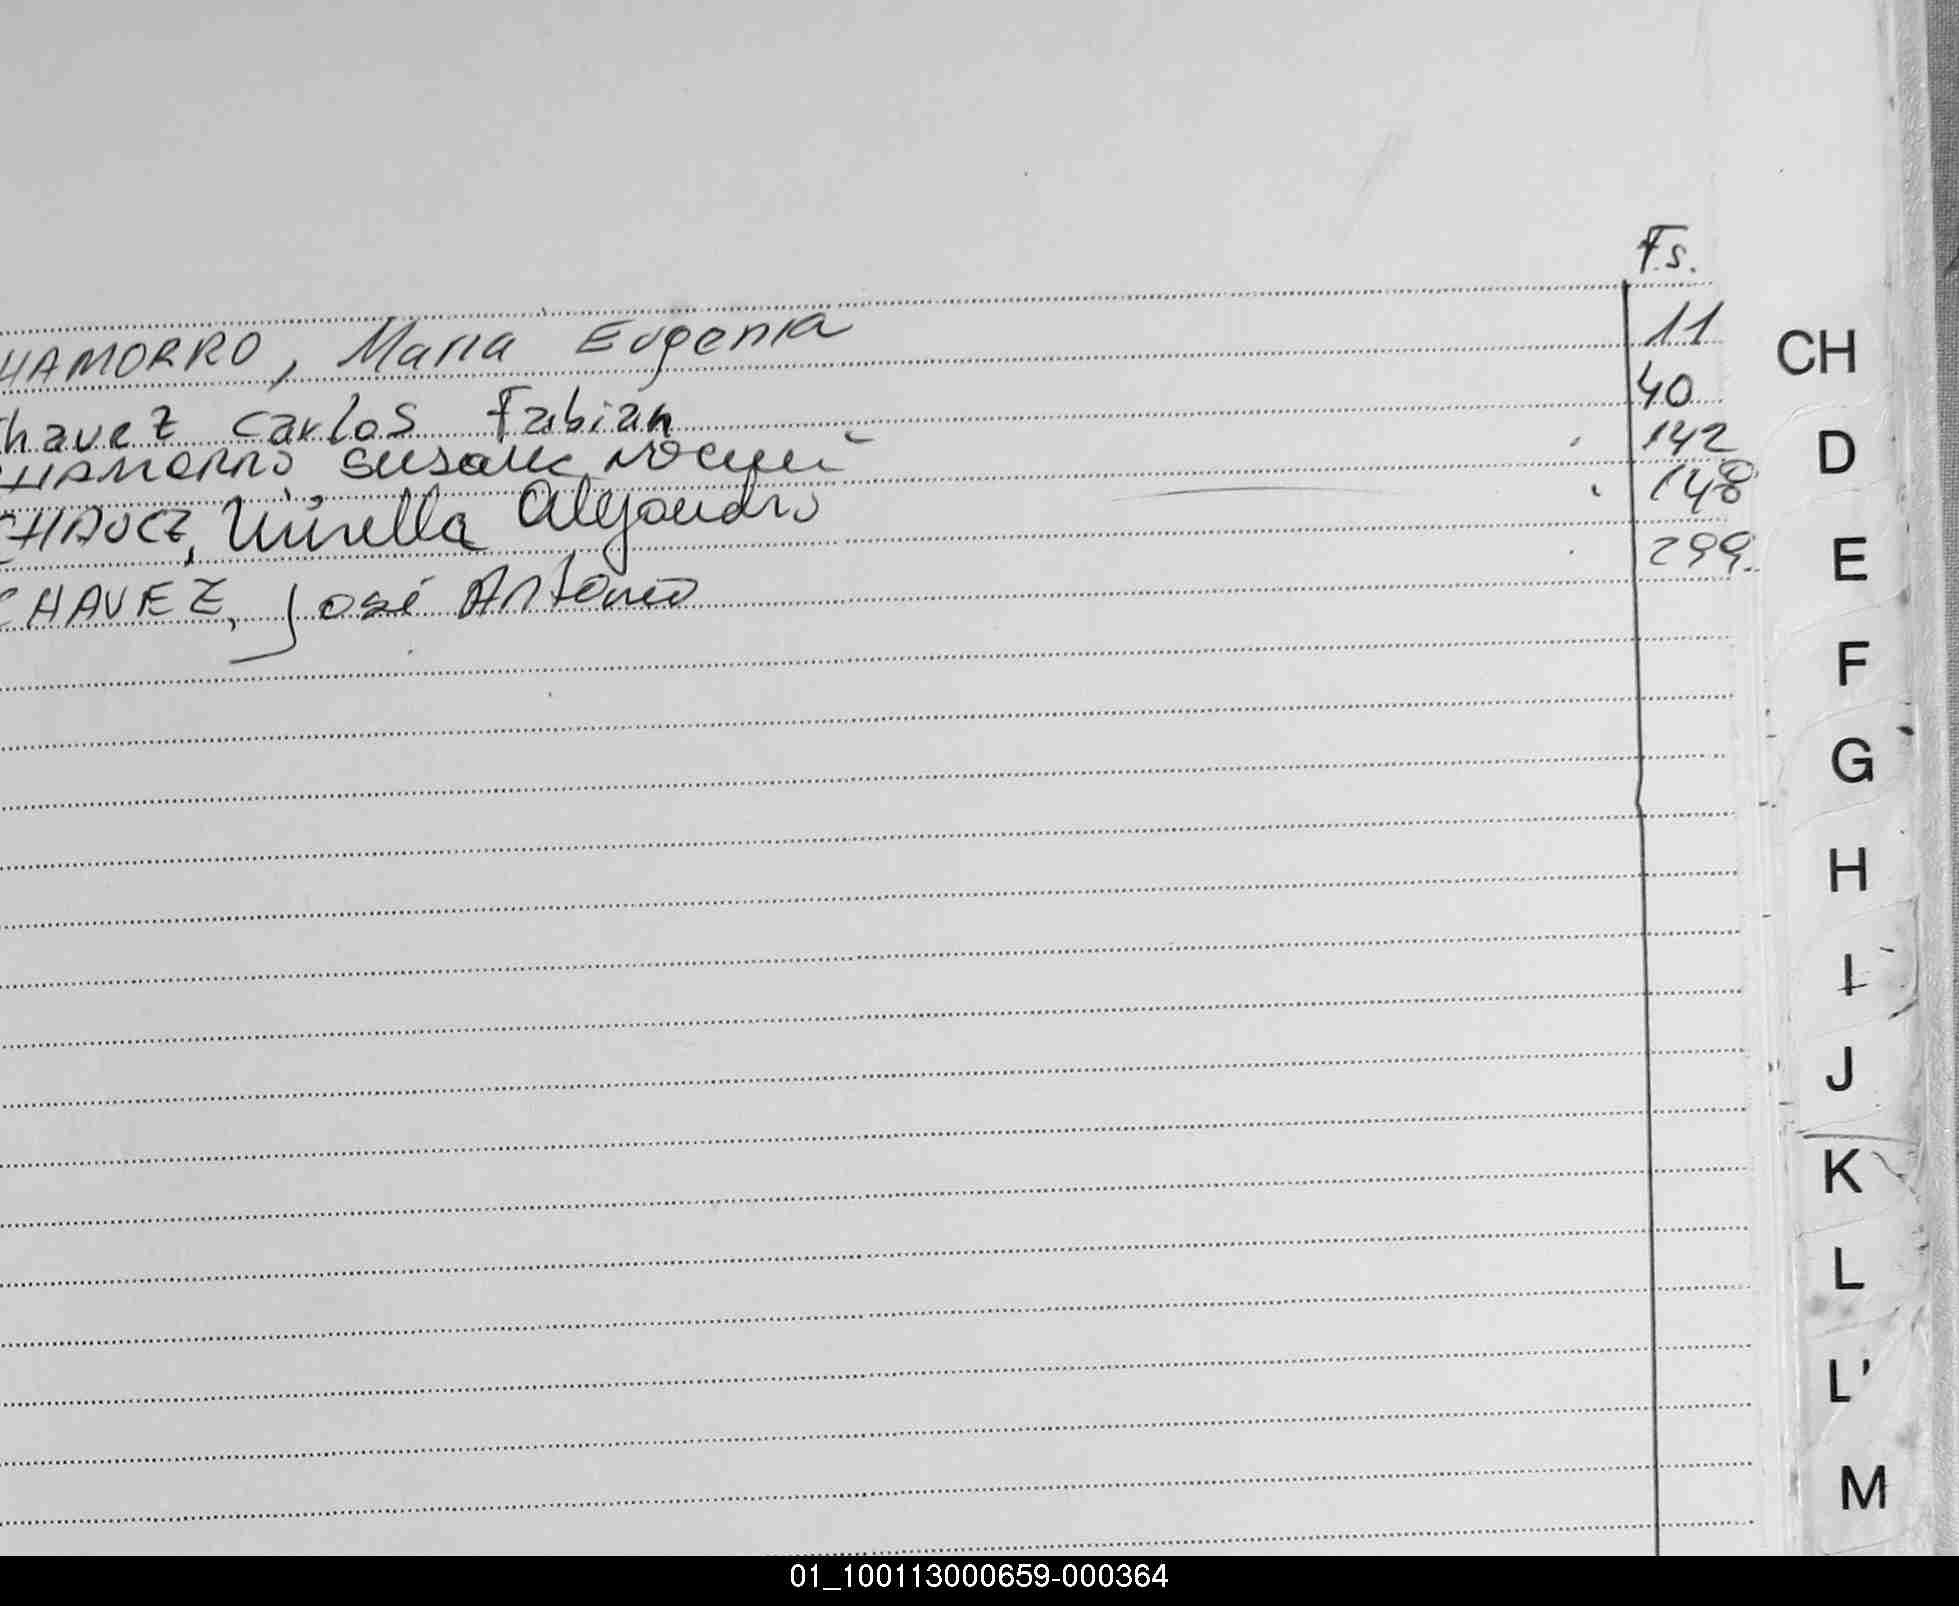 Fs.
HAMORRO, Maria Eugenia 11
Chavez Carlos Fabian 40
CHAMORRO Susana 142
CHAVEZ, Mirella Alejandro 148
CHAVEZ, José Antonio 299
CH
D
E
F
G
H
I
J
K
L
L'
M
01_100113000659-000364